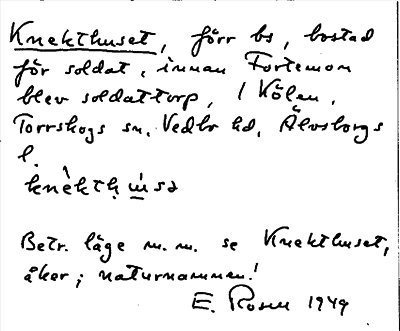 Knekthuset, förr bs, bostad
för soldat, innan Fortemon
blev soldattorp, i Kölen,
Torrskogs sn, Vedbo hd, Älvsborgs
l.
Betr. läge m.m. se Knekthuset,
åker; naturnamnen!
E. Rosen 1949